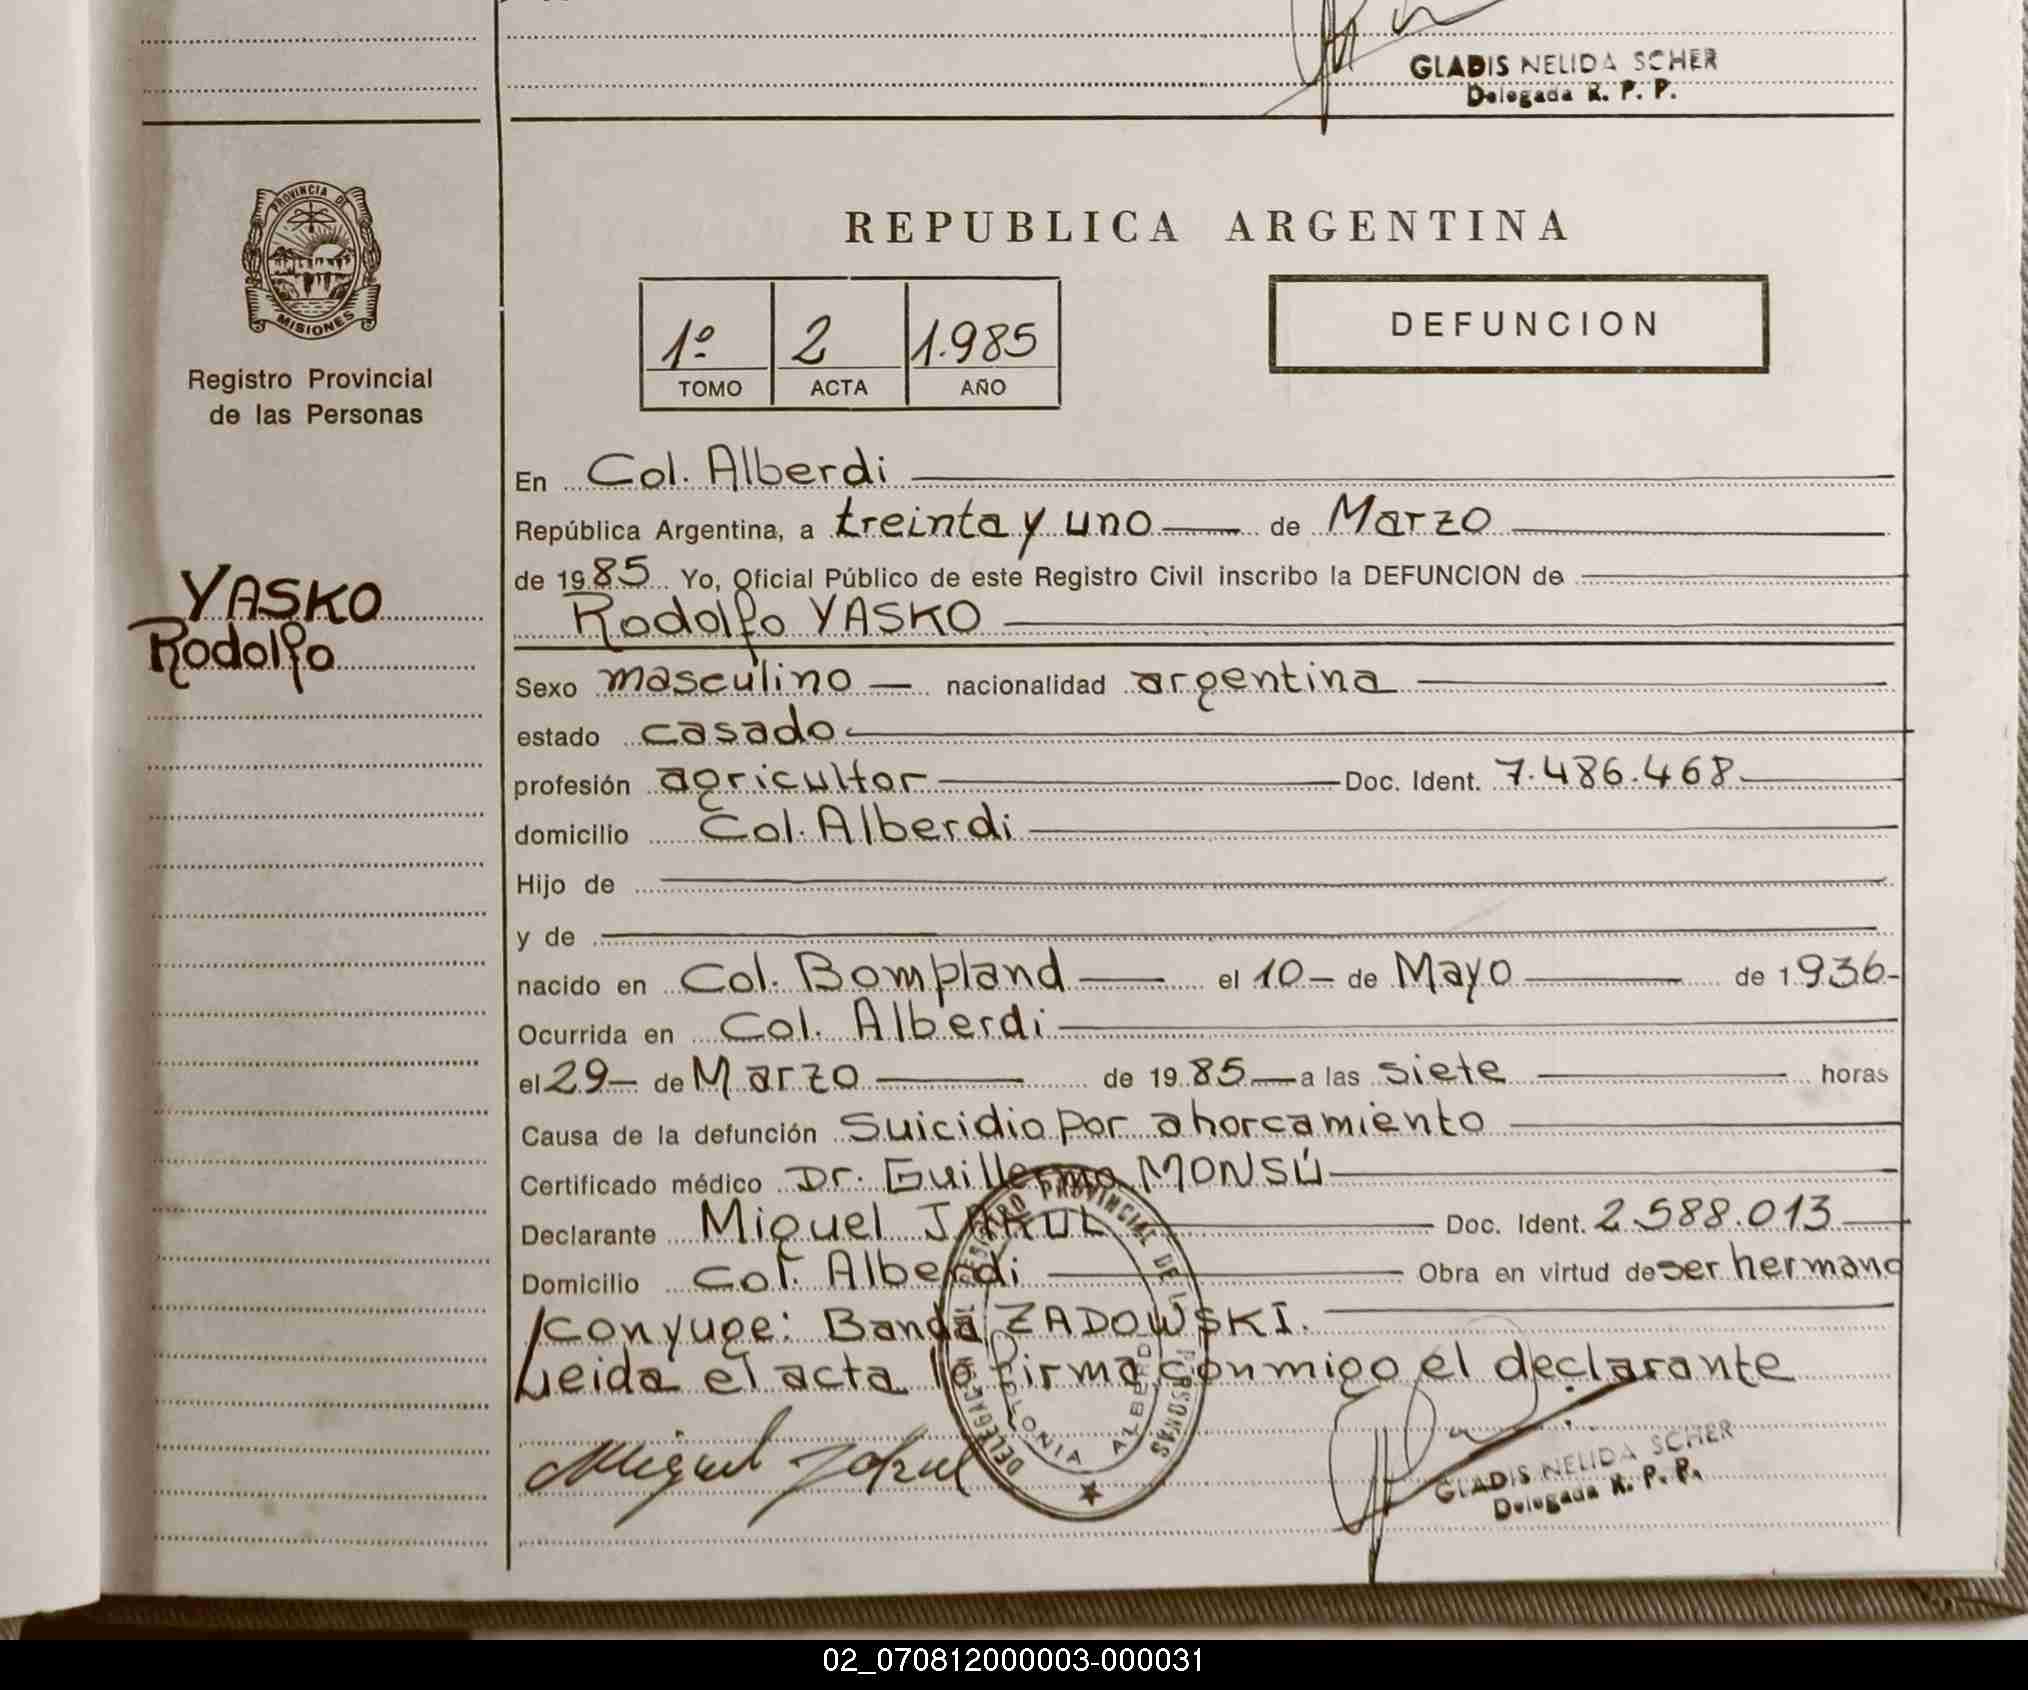 GLADIS NELIDA SCHER
Delegada R. P. P.
PROVINCIA DE
MISIONES
Registro Provincial
de las Personas
YASKO
Rodolfo
REPUBLICA ARGENTINA
1º 2 1.985
TOMO ACTA AÑO
DEFUNCION
En Col. Alberdi
República Argentina, a treinta y uno de Marzo
de 1985 Yo, Oficial Público de este Registro Civil inscribo la DEFUNCION de
Rodolfo YASKO
Sexo masculino nacionalidad argentina
estado casado
profesión agricultor Doc. Ident. 7.486.468
domicilio Col. Alberdi
Hijo de
y de
nacido en Col. Bompland el 10 de Mayo de 1936
Ocurrida en Col. Alberdi
el 29 de Marzo de 1985 a las siete horas
Causa de la defunción Suicidio por ahorcamiento
Certificado médico Dr. Guillermo MONSÚ
Declarante Miguel Doc. Ident. 2.588.013
Domicilio Col. Alberdi Obra en virtud de ser hermano
conyuge: Banda ZADOWSKI.
Leida el acta lo firma conmigo el declarante
Miguel
DELEGACION REGISTRO PROVINCIAL DE LAS PERSONAS
COLONIA ALBERDI
GLADIS NELIDA SCHER
Delegada R. P. P.
02_070812000003-000031